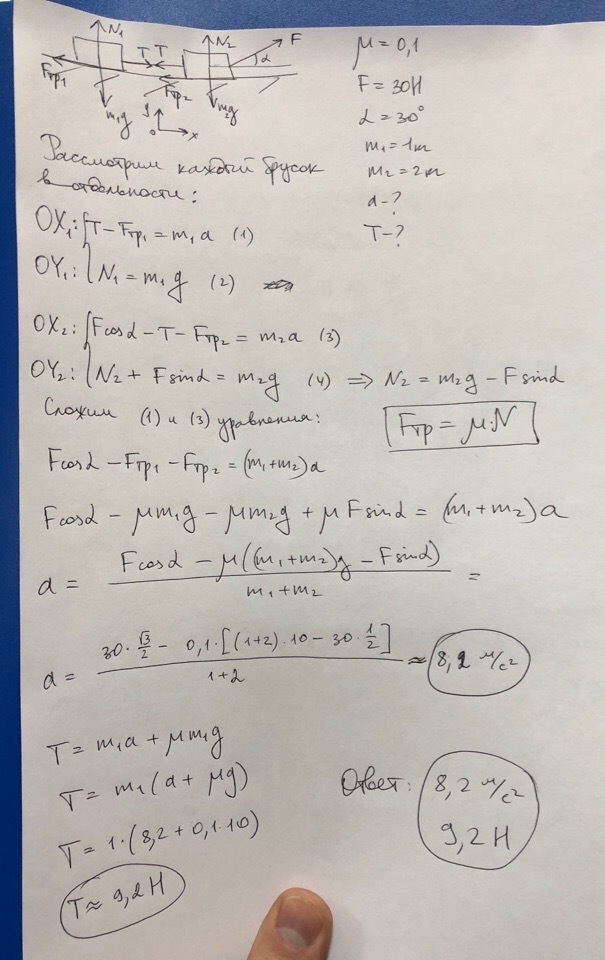 N₁
T T
N₂
F
α
Fтр₁
Fтр₂
m₁g
m₂g
y
0
x
μ = 0,1
F = 30Н
α = 30°
m₁ = 1кг
m₂ = 2кг
a - ?
T - ?
Рассмотрим каждый брусок
в отдельности:
OX₁: { T - Fтр₁ = m₁a (1)
OY₁: { N₁ = m₁g (2)
OX₂: { Fcosα - T - Fтр₂ = m₂a (3)
OY₂: { N₂ + Fsinα = m₂g (4) ⇒ N₂ = m₂g - Fsinα
Сложим (1) и (3) уравнения:
Fтр = μ·N
Fcosα - Fтр₁ - Fтр₂ = (m₁+m₂)a
Fcosα - μm₁g - μm₂g + μFsinα = (m₁+m₂)a
a = (Fcosα - μ((m₁+m₂)g - Fsinα)) / (m₁+m₂) =
a = (30·√3/2 - 0,1·[(1+2)·10 - 30·1/2]) / (1+2) ≈ 8,2 м/с²
T = m₁a + μm₁g
T = m₁(a + μg)
T = 1·(8,2 + 0,1·10)
T ≈ 9,2Н
Ответ: 8,2 м/с²
9,2Н